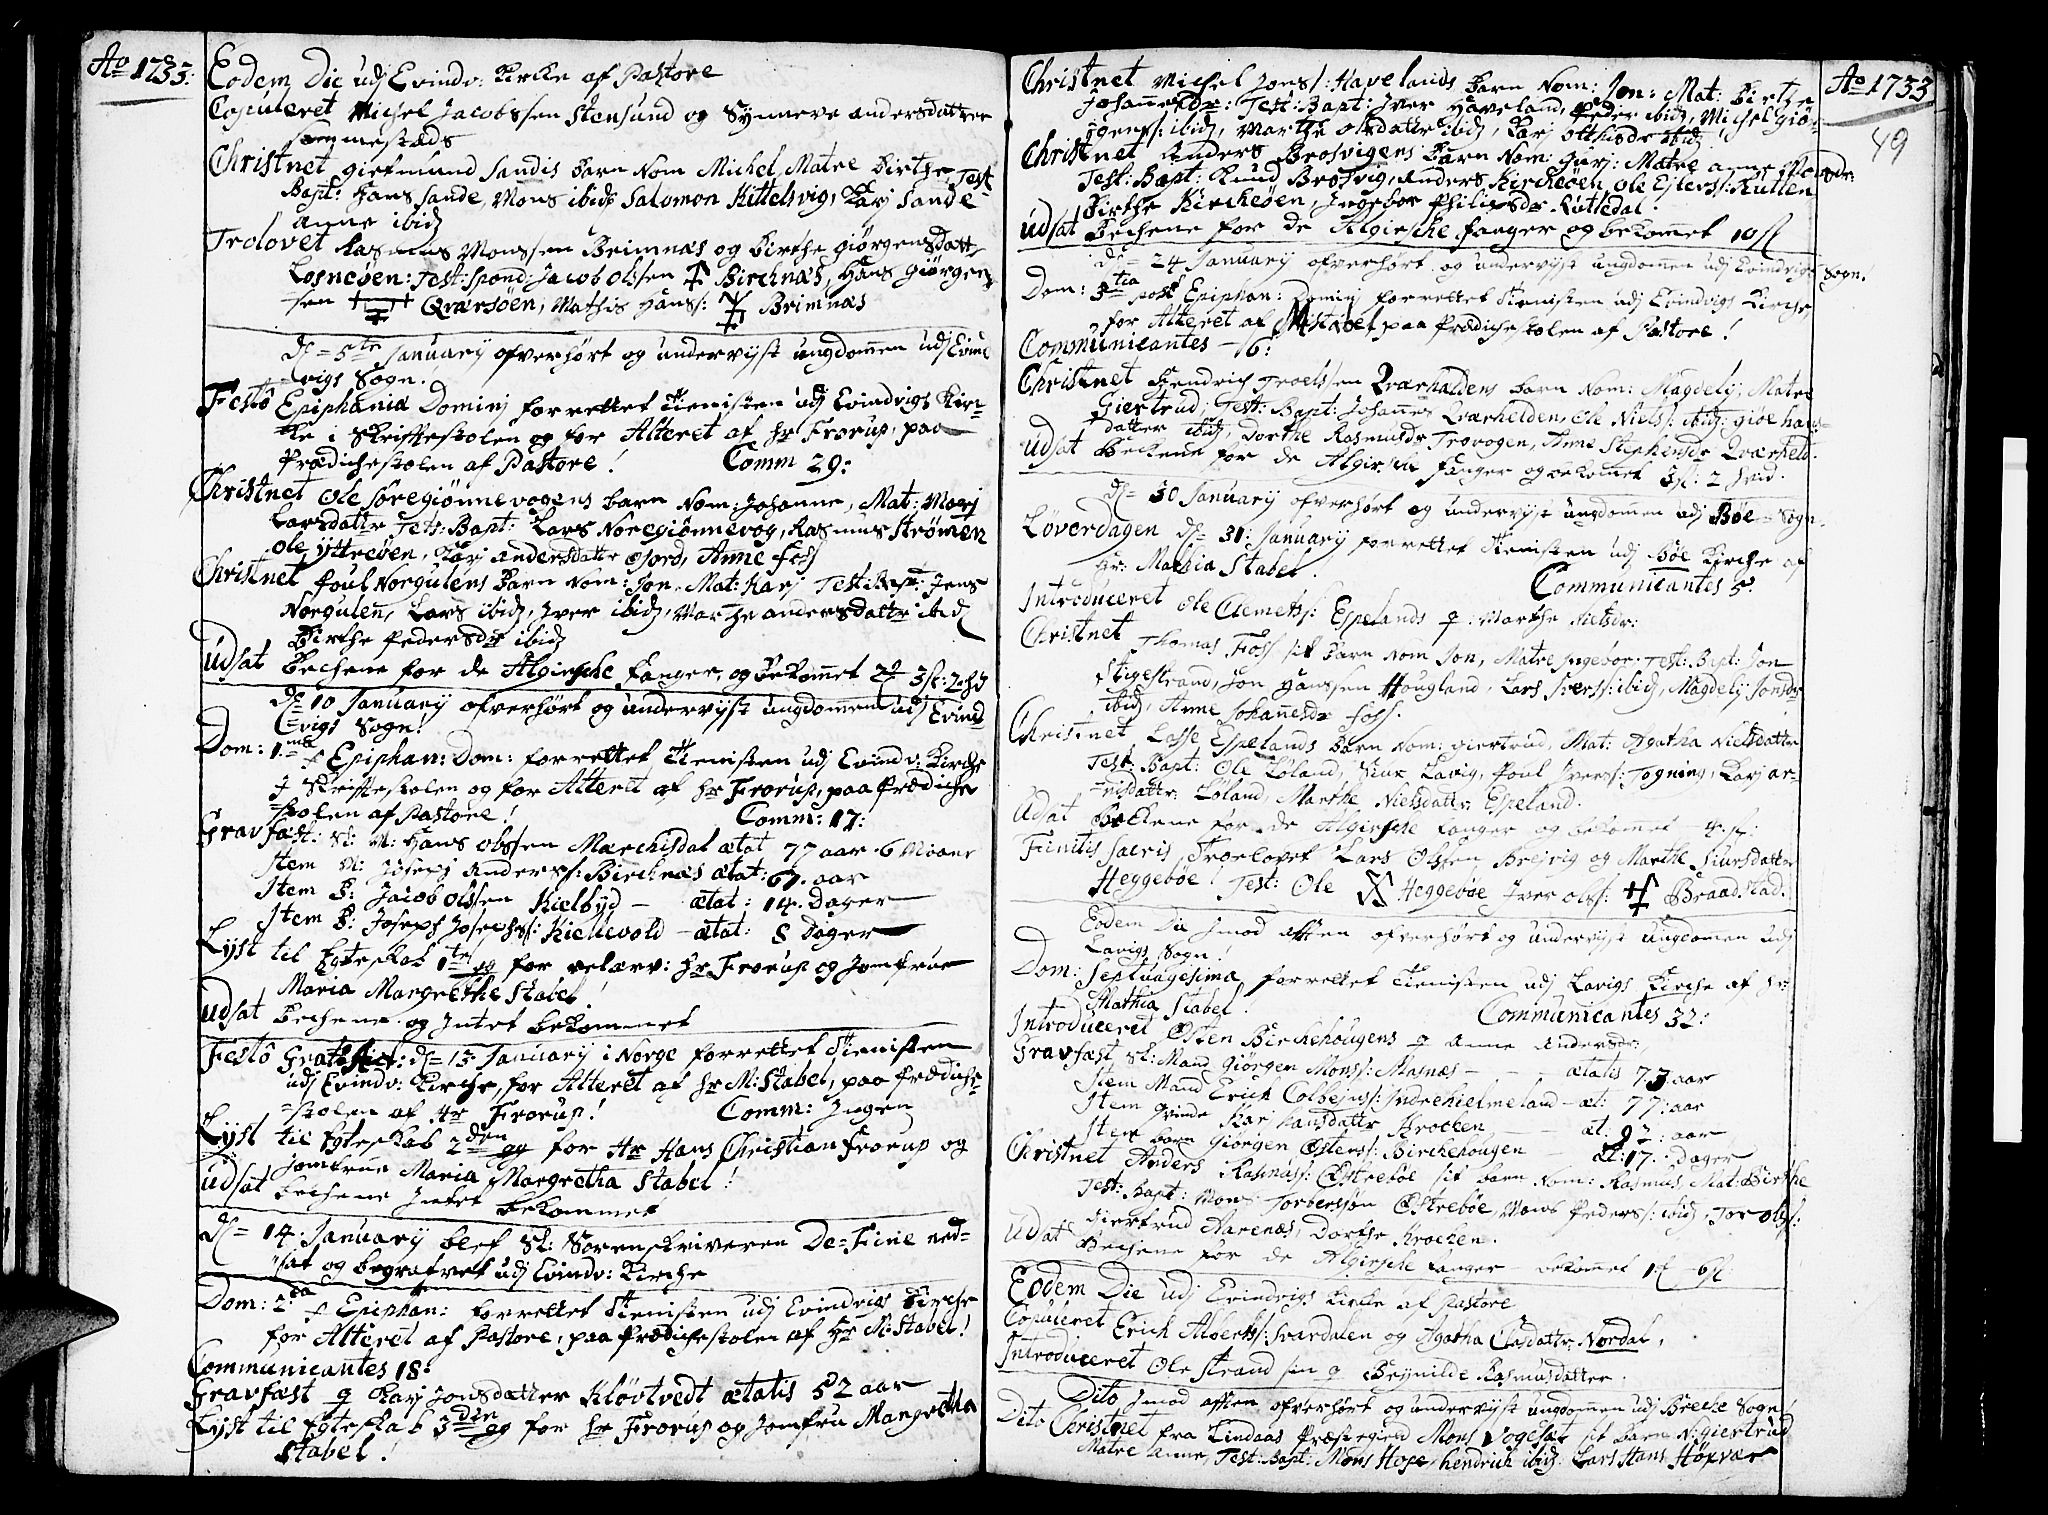 Ao 1733:
Eodem Die udj Evindv: Kirke af Pastore
Copuleret Michel Jacobssen Stensund og Synneve Andersdatter
sammestæds
Christnet giefmund Sandis Barn Nom Michel, Matre Birthe, Test
Bapt: Hans Sande, Mons ibid Salomon Kittelsvig, Karj Sande
Anne ibid
Trolovet Rasmus Monssen Brimnæs og Birthe Giørgensdatt
Losneøen: Test: Spond: Jacob Olssen Bircknæs, Hans Giørgen
sen Qværsøen, Mathis Hans: Brimnæs
d= 5te January ofverhørt og undervjst ungdommen udj Evind
vigs Sogn.
Festo Epiphania Dominj forrettet Tienisten udj Evindvigs Kir-
ke i Skriftestolen og for Alteret af Hr Frorup, paa
Prædichestolen af Pastore! Comm 29:
Christnet Ole Søregiønnevogens barn Nom: Johanne, Mat: Marj
Larsdattr Test: Bapt: Lars Noregiønnevog, Rasmus Strømen
Ole Yttreøen, Karj Andersdattr Ejord, Anne Foss
Christnet Poul Norgulens Barn Nom: Jon. Mat: Karj Test: Bapt: Jens
Norgulen, Lars ibid, Iver ibid, Marthe Andersdattr ibid
Birthe Pedersdr ibid
Udsat Bechene for de Algirsche Fanger, og Bekomet 3
d= 10 January ofverhørt og undervjst ungdommen udj Evind
vigs Sogn!
Dom: 1ma p Epiphan: Dom: forrettet Tienisten udj Evindv: Kirche
J Skriftestolen og for Alteret af Hr Frorup, paa Prædiche
stolen af Pastore! Comm: 17:
Gravfæst: Sl: M: Hans Olssen Mærchisdal ætat 77 aar 6 Moaner
Item M: Joseph Anderss: Bircknæs ætat: 67. aar
Item B: Jacob Olssen Kielbyd — ætat: 14. Dager
Item B: Joseph Josephs: Kiellevold — ætat: 8 Dager
Lyst til Egteskab 1te gg for velærv: Hr Frorup og Jomfrue
Maria Margrethe Stabel!
Udsat Bechene og Intet bekommet
Festo d= 13 January i Norge forrettet Tienisten
udj Evindv: Kirche, for Alteret af Hr M: Stabel, paa Prædiche-
stolen af Hr Frorup! Comm: Ingen
Lyst til Egteskab 2den gg for Hr Hans Christian Frorup og
Jomfrue Maria Margretha Stabel!
Udsat bechene Intet bekommet
d= 14 January blef Sl: Sorenskriveren De=Fine ned=
sat og begrafvet udj Evindv: Kirche
Dom: 2da p Epiphan: forrettet Tienisten udj Evindvigs Kirche
for Alteret af Pastore, paa Prædichestolen af Hr M: Stabel!
Communicantes 18:
Gravfæst q Karj Jonsdatter Kløvtvedt ætatis 52 aar
Lyst til Egteskab 3die gg for Hr Frorup og Jomfru Margretha
Stabel!
Ao 1733
49
Christnet Michel Jons: Havelands Barn Nom: Jon: Mat: Birthe
Johannesdr: Test: Bapt: Iver Haveland, Peder ibid, Michel Giør-
gens: ibid, Marthe Olsdattr ibid, Karj ibid
Christnet Anders Brosvigens Barn Nom: Gurj: Matre Anne Monsdr:
Test: Bapt: Knud Brosvig, Anders Kircheøen Ole Rutlen
Birthe Kircheøen, Ingebor Philipsdr Rutledal.
Udsat Bechene for de Algirsche fanger og bekomet 10
d= 24 January ofverhørt og undervjst ungdommen udj Evindvigs Sogn.
Dom: 3tia post Epiphan: Dominj forrettet Tienisten udj Evindvigs Kirche
for Alteret af M: Stabel, paa Prædichestolen af Pastore!
Communicantes — 6:
Christnet Hendrich Troelssen Qværhaldens barn Nom: Magdelj, Matre
Giertrud; Test: Bapt: Johannes Qværhelden, Ole Niels: ibid: Giøe Hans
datter ibid, Dorthe Rasmusdr Trovogen, Anne Stephensdr Qværheld.
Udsat Beckene for de Algirsche fanger og bekomet 3 2
d= 30 January ofverhørt og undervjst ungdommen udj Bøe Sogn.
Løverdagen d= 31: January forrettet Tienisten udj Bøe Kirche af
Hr: Mathia Stabel. Communicantes 5:
Introduceret Ole Clemets: Espelands q: Marthe Nielsdr:
Christnet Thomas Foss sit Barn Nom Jon, Matre Ingebor: Test: Bapt: Jon
Stigestrand, Jon Hanssen Hougland, Lars Ivers: ibid, Magdelj: Jonsdr
ibid, Anne Johannesdr Foss.
Christnet Lasse Espelands Barn Nom: Giertrud, Mat: Agatha Nielsdattr
Test: Bapt: Ole Løland, Siur Lavig, Poul Ivers: Togning, Karj Ar-
nisdattr: Løland, Marthe Nielsdattr Espeland.
Udsat Beckene for de Algirsche fanger og bekomet — 4
Finitis Sacris Troelovet Lars Olssen Brejvig og Marthe Siursdatter
Heggebøe! Test: Ole Heggebøe Iver Ols: Braadstad.
Eodem Die Imod aften ofverhørt og undervjst ungdommen udj
Lavigs Sogn!
Dom: Septuagesima forrettet Tienisten udj Lavigs Kirche af Hr:
Mathia Stabel. Communicantes 32:
Introduceret Østen Birchehougens q Anne Andersdr:
Gravfæst Sl: Mand Giørgen Mons: Masnæs — — ætatis 73 aar
Item Mand Erich Colbejns: Indrehielmeland — æt: 77: aar
Item Qvinde Karj Hansdattr Krocken — æt: 92: aar
Item barn Giørgen Østens: Birchehougen — æt: 17: Dager
Christnet Anders Rasmus: Østrebøe sit barn Nom: Rasmus, Mat: Birthe
Test: Bapt: Mons Torberssøn Østrebøe, Mons Peders: ibid, Tor Ols:
Giertrud Aarenæs, Dorthe Krocken.
Udsat Bechene for de Algirsche fanger bekomet 1 6
Eodem Die udj Evindvigs Kirke af Pastore
Copuleret Erich Alberts: Svardalen og Agatha Clasdattr: Nordal.
Introduceret Ole Strand sin q Beynilde Rasmusdatter.
Dito Imod aften ofverhørt og undervjst ungdommen udj Breche Sogn!
Dito Christnet fra Lindaas Præstegield Mons Vogeset sit barn N: Giertrud
Matre Anne, Test: Bapt: Mons Hope, Hendrich ibid Lars Hopvær